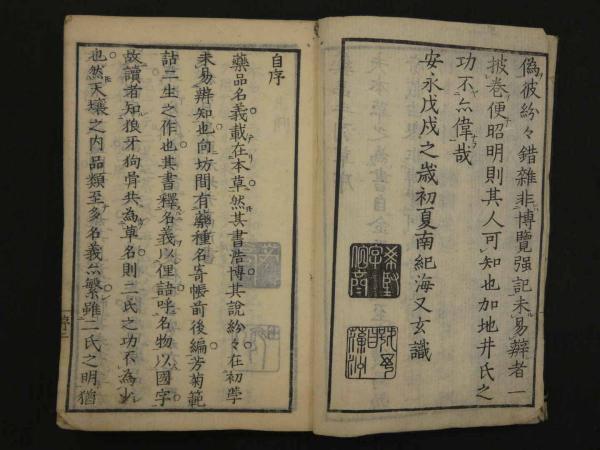 偽彼紛々錯雜非博覽强記未易辯者一
披卷便昭明則其人可知也加地井氏之
功不亦偉哉
安永戊戌之歳初夏南紀海又玄識
自序
藥品名義載在本草然其書浩博其說紛々在初學
未易辨知也向坊間有藥種名寄帳前後編芳菊範
詁二生之作也其書釋名義以俚語呼名物以國字
故讀者知狼牙狗骨共為草名則二氏之功不為少
也然天壤之內品類至多名義亦繁雖二氏之明猶